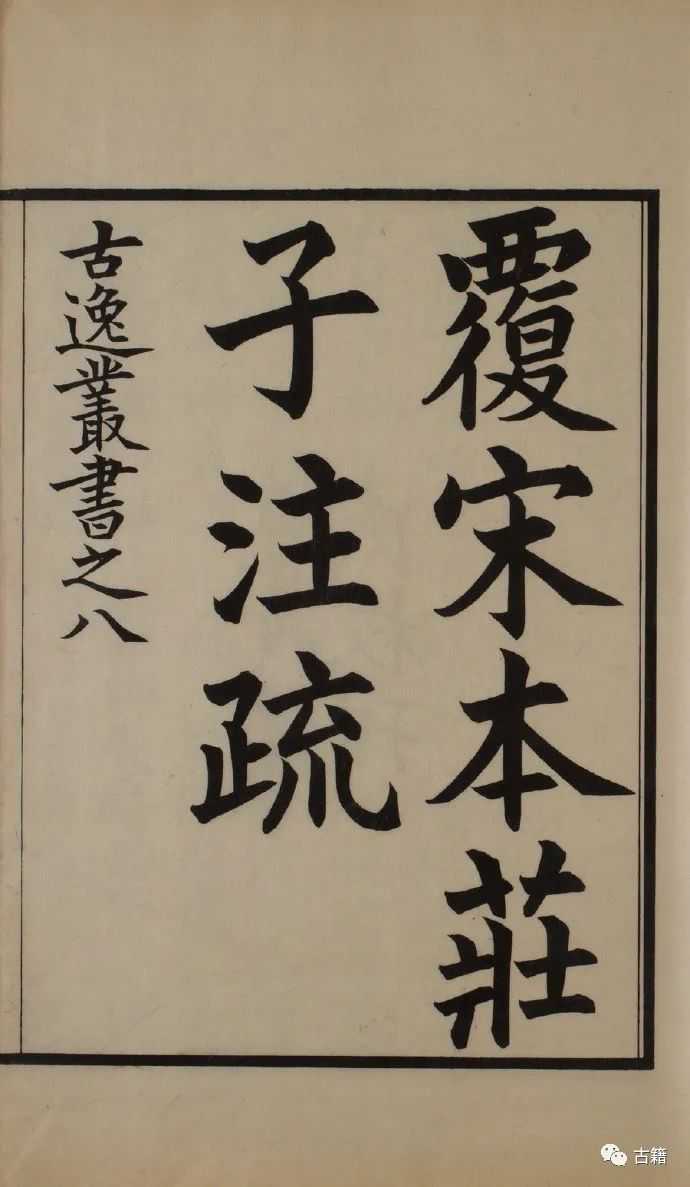 覆宋本莊
子注疏
古逸叢書之八
古籍